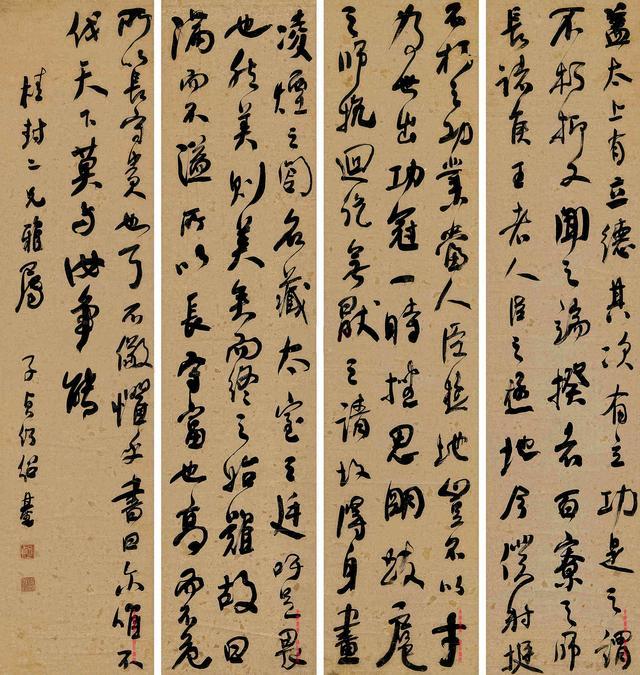 蓋太上有立德其次有立功是之謂
不朽抑又聞之端揆者百寮之師
長諸侯王者人臣之極地今僕射挺
不朽之功業當人臣極地豈不以才
為世出功冠一時挫思明跋扈
之師抗迴紇無猒之請故得身畫
凌煙之閣名藏太室之廷吁足畏
也然美則美矣而終之始難故曰
滿而不溢所以長守富也高而不危
所以長守貴也可不儆懼乎書曰爾唯不
伐天下莫與汝爭能
桂封二兄雅屬 子貞何紹基